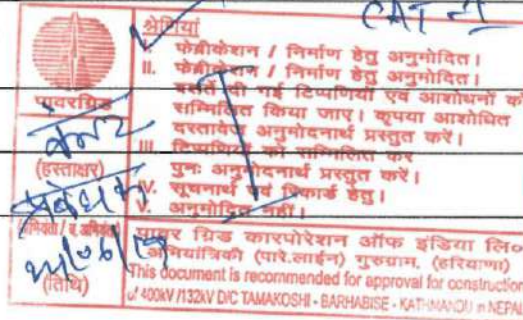 CAT-I
श्रेणियां
I. फेब्रीकेशन / निर्माण हेतु अनुमोदित।
II. फेब्रीकेशन / निर्माण हेतु अनुमोदित।
बशर्ते दी गई टिप्पणियां एवं आशोधनों को
सम्मिलित किया जाए। कृपया आशोधित
दस्तावेज अनुमोदनार्थ प्रस्तुत करें।
III टिप्पणियों को सम्मिलित कर
पुनः अनुमोदनार्थ प्रस्तुत करें।
IV. सूचनार्थ एवं रिकार्ड हेतु।
V. अनुमोदित नहीं।
पावरग्रिड
(हस्ताक्षर)
(तिथि)
पावर ग्रिड कारपोरेशन ऑफ इंडिया लि०
अभियांत्रिकी (पारे.लाईन) गुरुग्राम, (हरियाणा)
This document is recommended for approval for construction
of 400kV /132kV D/C TAMAKOSHI - BARHABISE - KATHMANDU in NEPAL